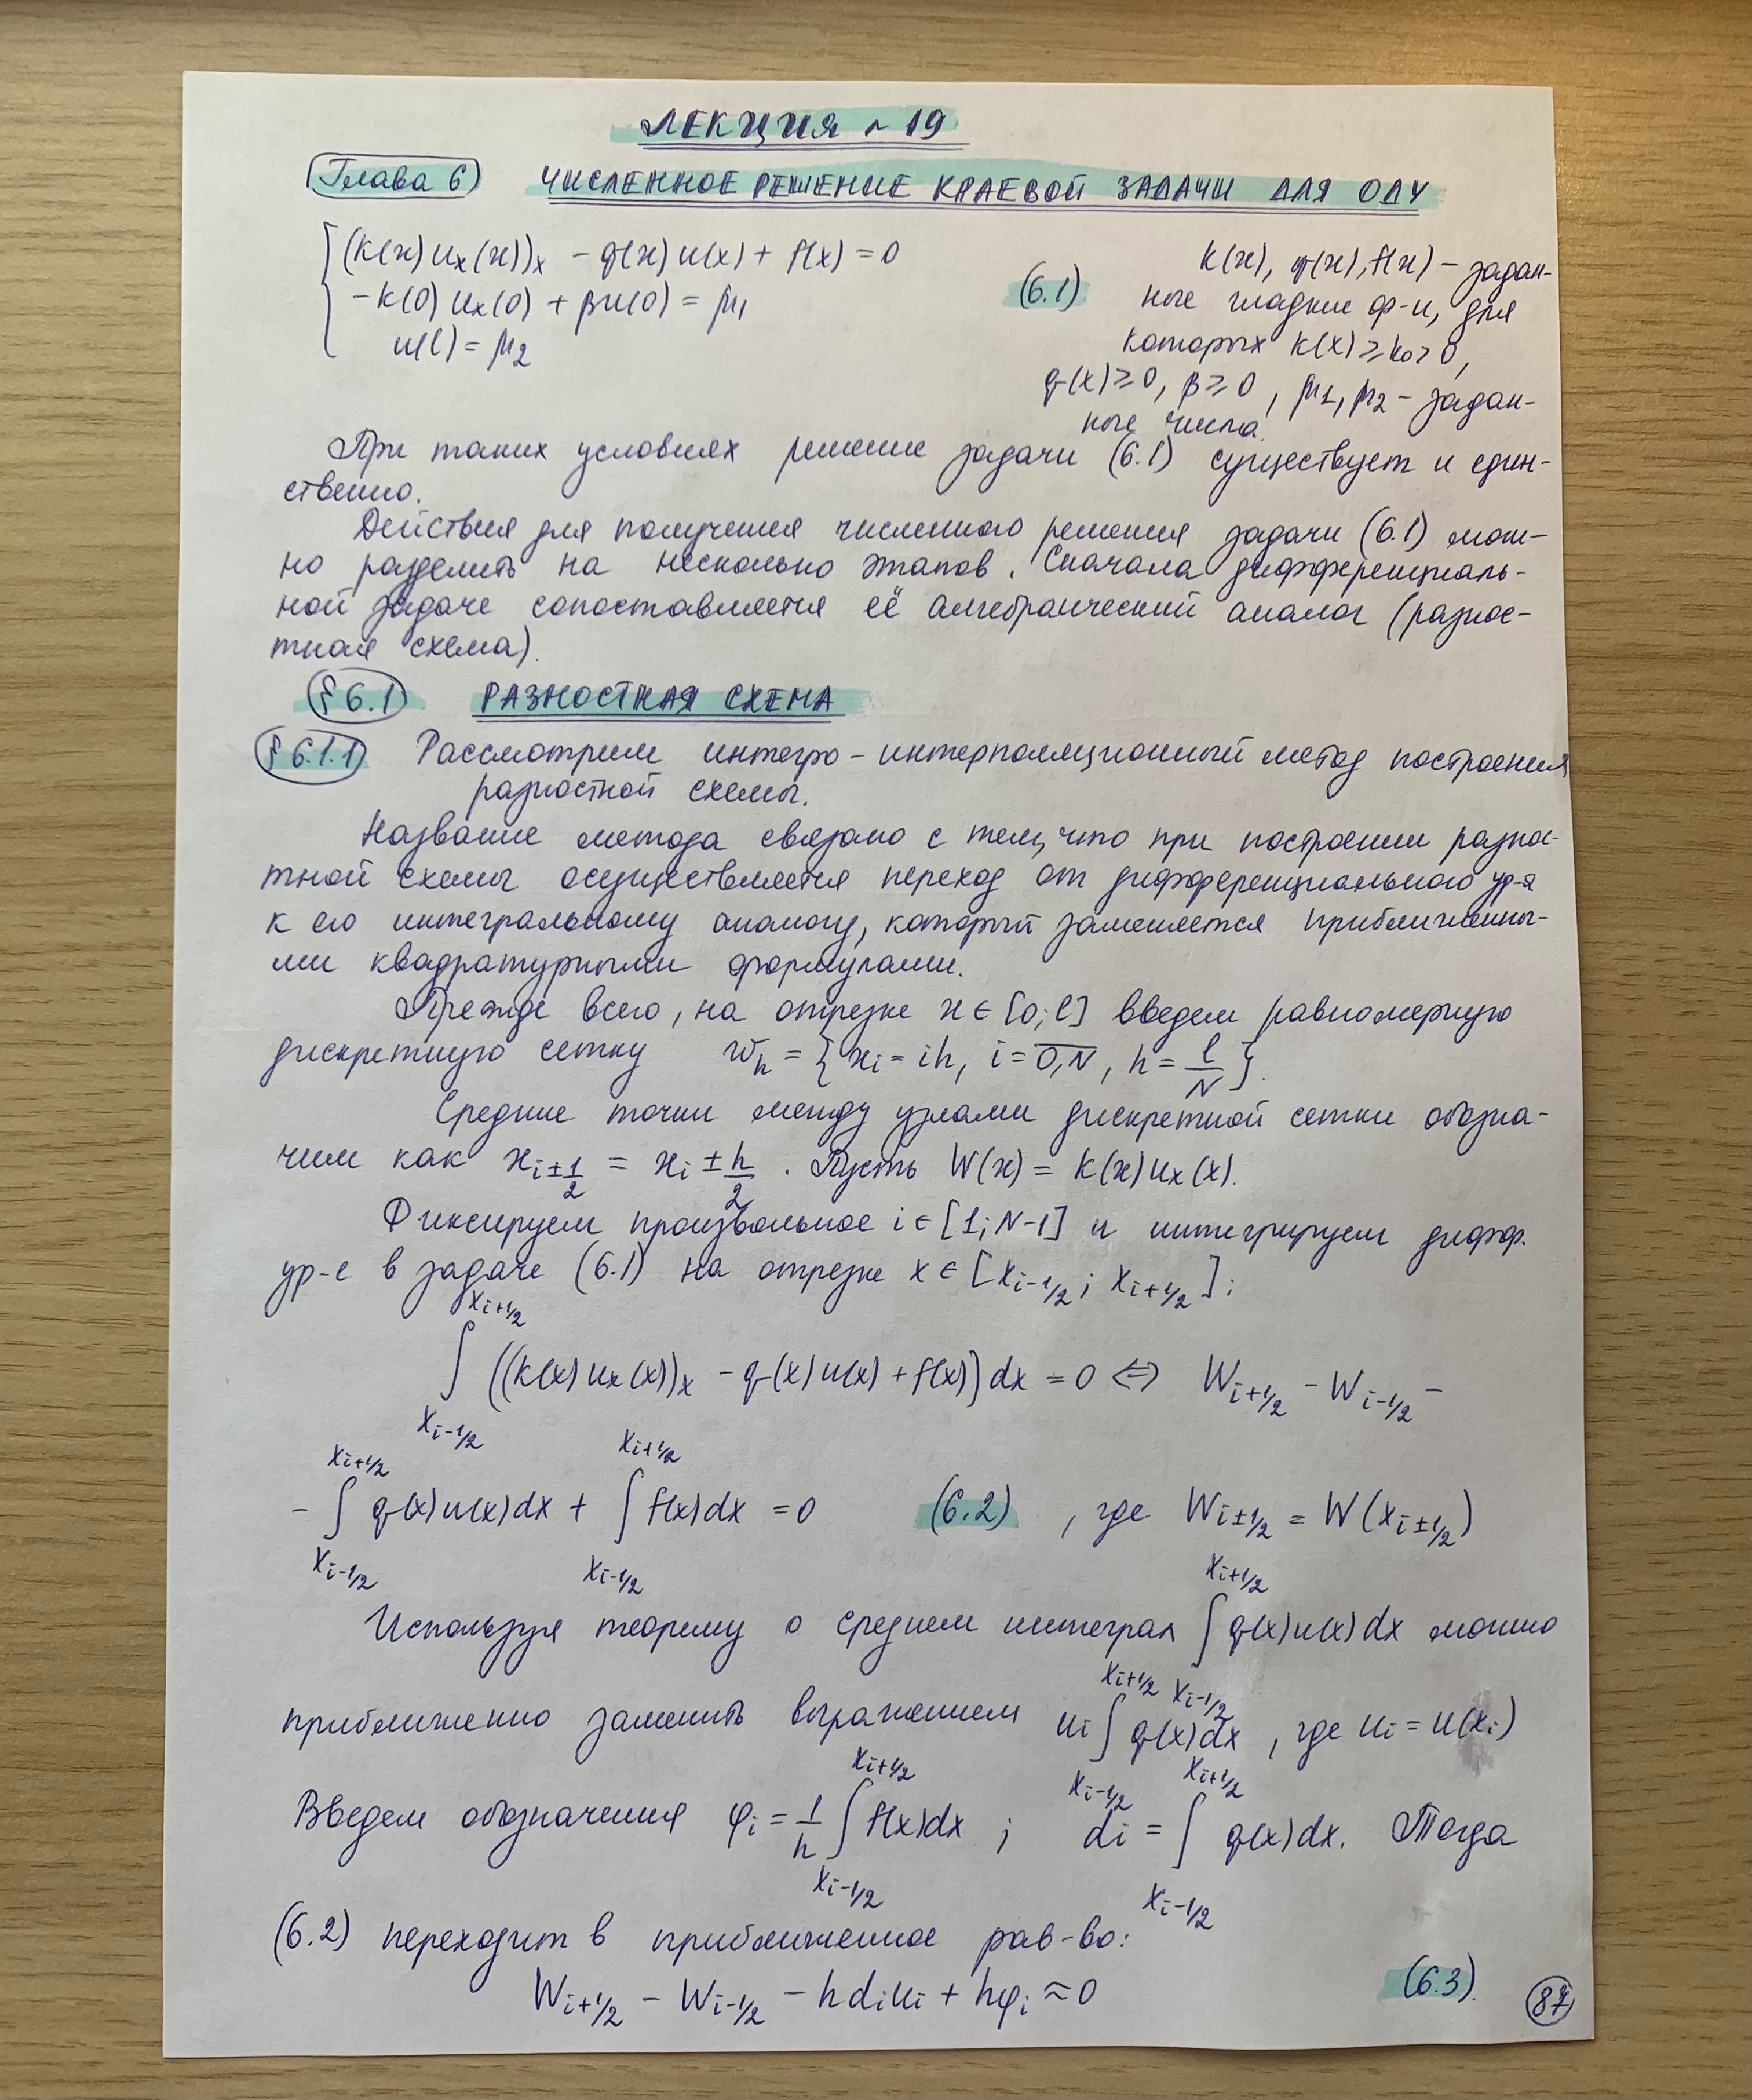 ЛЕКЦИЯ №19
Глава 6 ЧИСЛЕННОЕ РЕШЕНИЕ КРАЕВОЙ ЗАДАЧИ ДЛЯ ОДУ
(k(x)uₓ(x))ₓ - q(x)u(x) + f(x) = 0
-k(0)uₓ(0) + βu(0) = μ₁
u(l) = μ₂
(6.1)
k(x), q(x), f(x) - задан-
ные гладкие ф-и, для
которых k(x) ≥ k₀ > 0,
q(x) ≥ 0, β ≥ 0, μ₁, μ₂ - задан-
ные числа.
При таких условиях решение задачи (6.1) существует и един-
ственно.
Действия для получения численного решения задачи (6.1) мож-
но разделить на несколько этапов. Сначала дифференциаль-
ной задаче сопоставляется её алгебраический аналог (разнос-
тная схема).
§ 6.1 РАЗНОСТНАЯ СХЕМА
§ 6.1.1 Рассмотрим интегро-интерполяционный метод построения
разностной схемы.
Название метода связано с тем, что при построении разнос-
тной схемы осуществляется переход от дифференциального ур-я
к его интегральному аналогу, который заменяется приближенны-
ми квадратурными формулами.
Прежде всего, на отрезке x ∈ [0; l] введем равномерную
дискретную сетку w̄ₕ = { xᵢ = ih, i = 0,N, h = l/N }.
Средние точки между узлами дискретной сетки обозна-
чим как x_{i±1/2} = xᵢ ± h/2. Пусть W(x) = k(x)uₓ(x).
Фиксируем произвольное i ∈ [1; N-1] и интегрируем дифф.
ур-е в задаче (6.1) на отрезке x ∈ [x_{i-1/2}; x_{i+1/2}]:
∫_{x_{i-1/2}}^{x_{i+1/2}} ((k(x)uₓ(x))ₓ - q(x)u(x) + f(x)) dx = 0 ⇔ W_{i+1/2} - W_{i-1/2} -
- ∫_{x_{i-1/2}}^{x_{i+1/2}} q(x)u(x)dx + ∫_{x_{i-1/2}}^{x_{i+1/2}} f(x)dx = 0 (6.2), где W_{i±1/2} = W(x_{i±1/2})
Используя теорему о среднем интеграл ∫_{x_{i-1/2}}^{x_{i+1/2}} q(x)u(x)dx можно
приближенно заменить выражением uᵢ ∫_{x_{i-1/2}}^{x_{i+1/2}} q(x)dx, где uᵢ = u(xᵢ)
Введем обозначения φᵢ = 1/h ∫_{x_{i-1/2}}^{x_{i+1/2}} f(x)dx; dᵢ = ∫_{x_{i-1/2}}^{x_{i+1/2}} q(x)dx. Тогда
(6.2) переходит в приближенное рав-во:
W_{i+1/2} - W_{i-1/2} - hdᵢuᵢ + hφᵢ ≈ 0 (6.3).
87